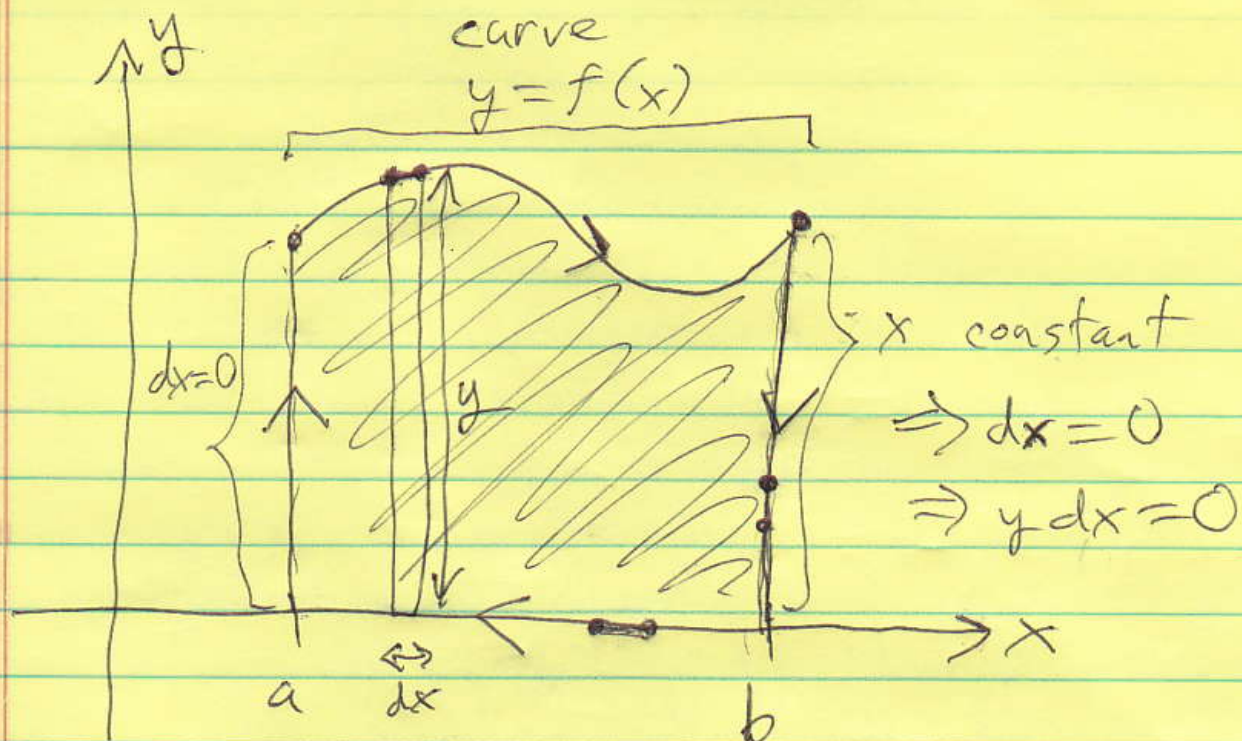 y
curve
y = f(x)
dx=0
y
x constant
⇒ dx = 0
⇒ y dx = 0
x
a
dx
b